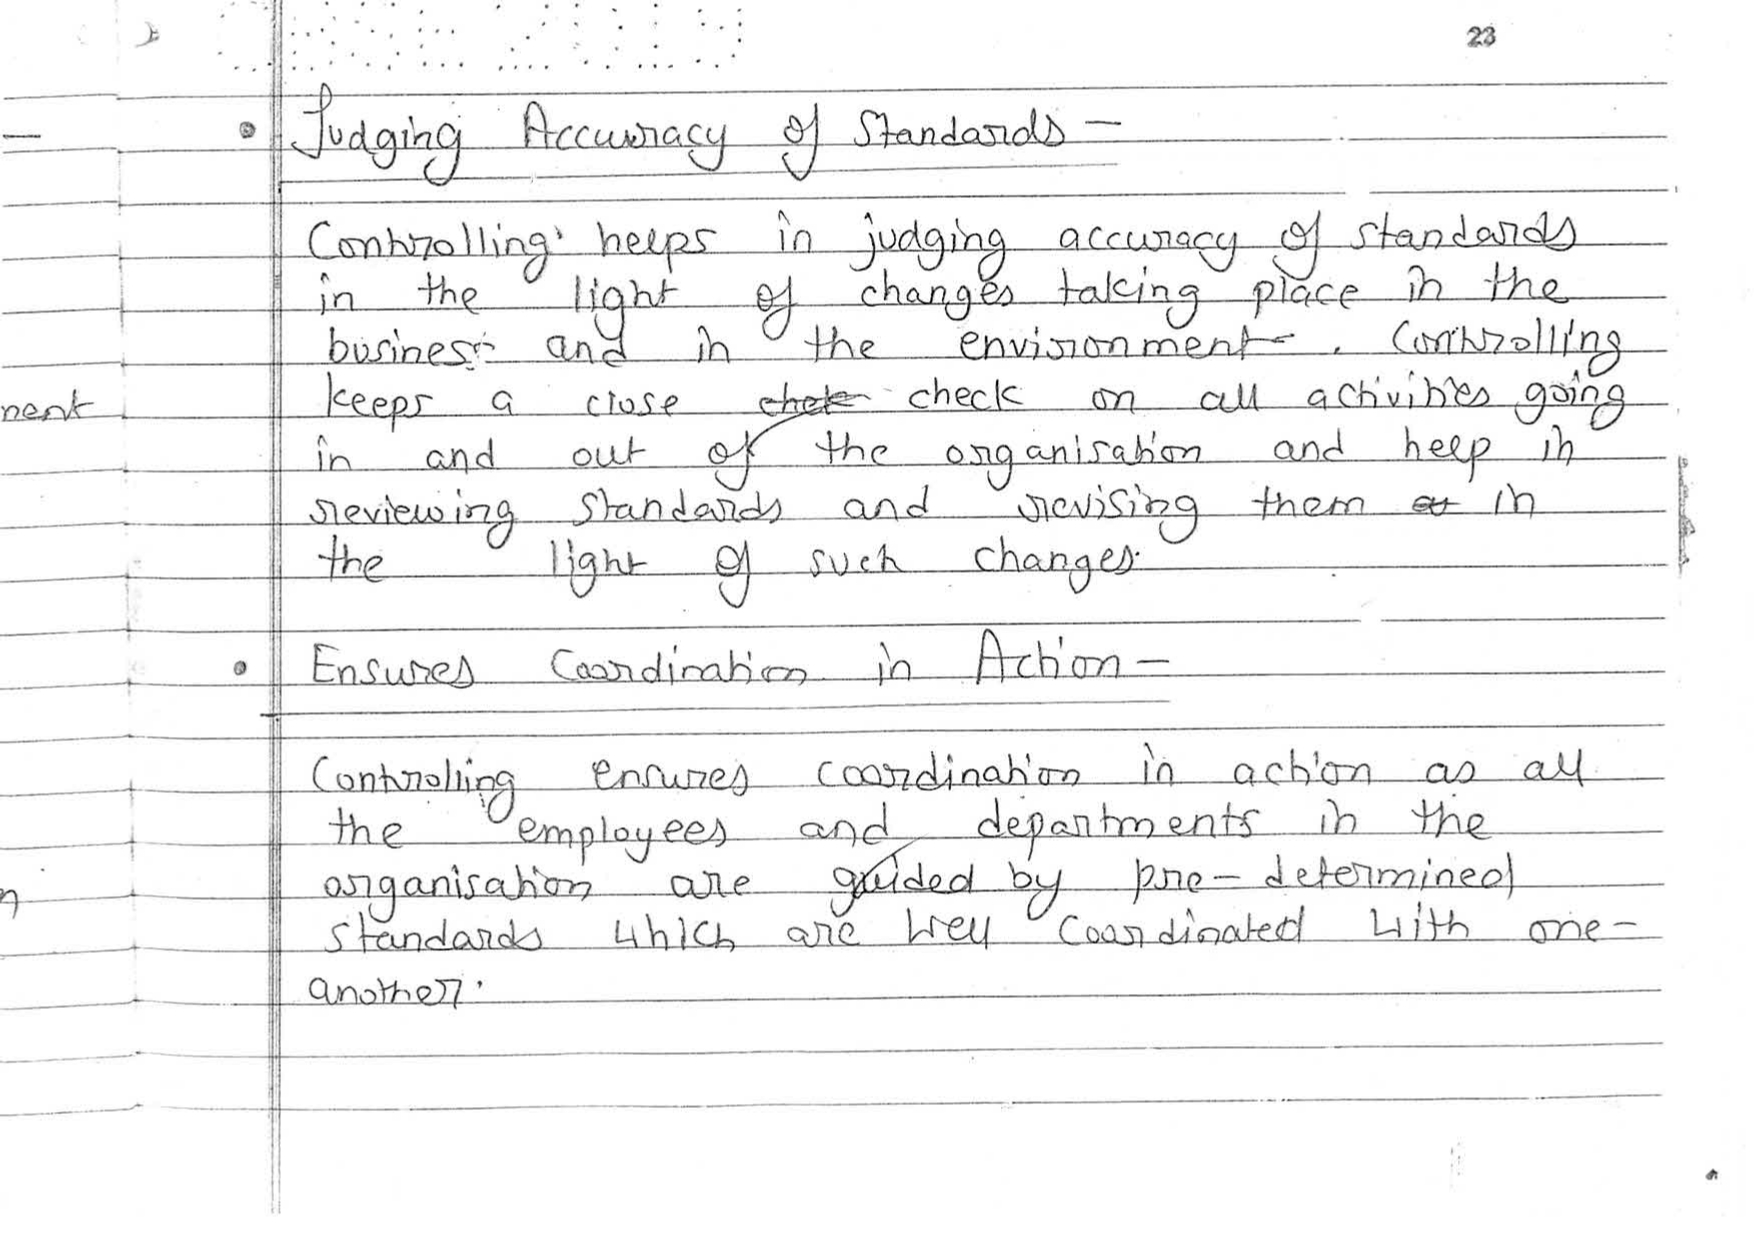 23
• Judging Accuracy of Standards —
Controlling helps in judging accuracy of standards
in the light of changes taking place in the
business and in the environment. Controlling
nent keeps a close chek check on all activities going
in and out of the organisation and help in
reviewing standards and revising them in
the light of such changes.
• Ensures Coordination in Action —
Controlling ensures coordination in action as all
the employees and departments in the
organisation are guided by pre-determined
standards which are well coordinated with one-
another.